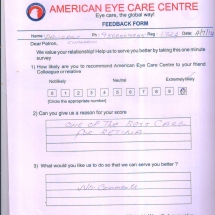 AMERICAN EYE CARE CENTRE
Eye care, the global way!
FEEDBACK FORM
Name: Ph: Reg: Date:
Dear Patron,
We value your relationship! Help us to serve you better by taking this one minute
survey
1) How likely are you to recommend American Eye Care Centre to your friend
Colleague or relative
Not likely Neutral Extremely likely
0 1 2 3 4 5 6 7 8
(Circle the appropriate number)
2) Can you give us a reason for your score
ONE OF THE BEST CARE
FOR RETINA
3) What would you like us to do so that we can serve you better ?